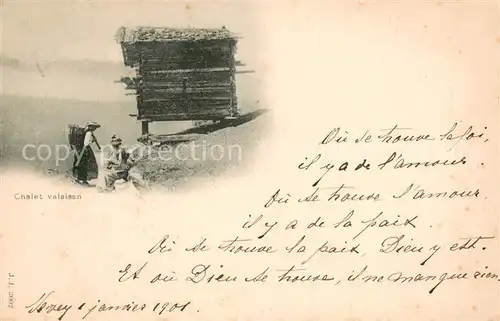 Chalet valaisan
Où se trouve la foi,
il y a de l'amour.
Où se trouve l'amour.
il y a de la paix.
Où se trouve la paix, Dieu y est.
Et où Dieu se trouve, il ne manque rien.
Vevey 1 janvier 1901.
J. J. 2902
www.cparama.com